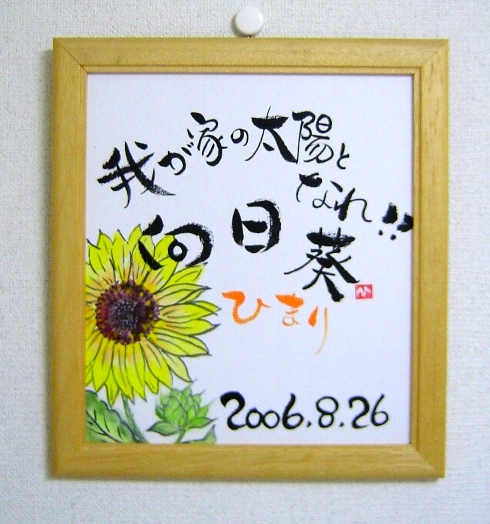 我が家の太陽と
なれ!!
向日葵
ひまり
2006.8.26